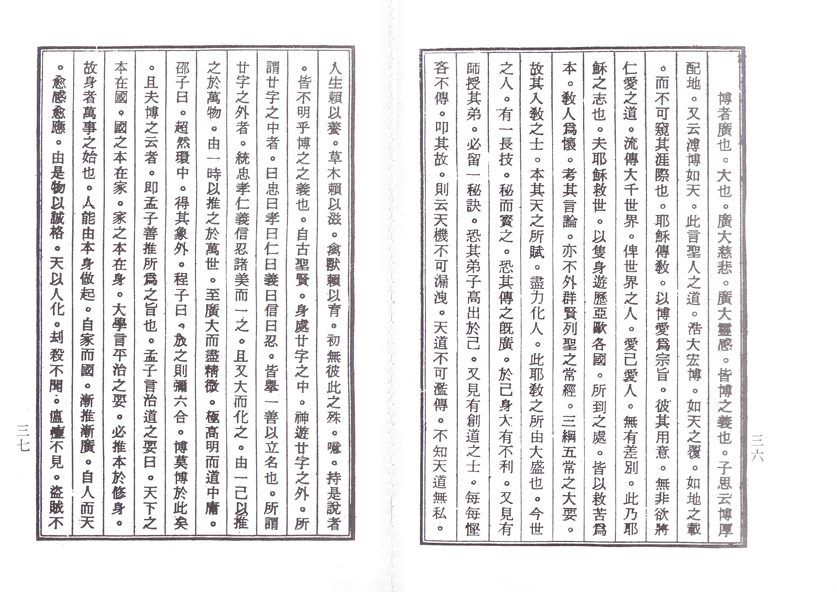 博者廣也。大也。廣大慈悲。廣大靈感。皆博之義也。子思云博厚
配地。又云溥博如天。此言聖人之道。浩大宏博。如天之覆。如地之載
。而不可窺其涯際也。耶穌傳教。以博愛爲宗旨。彼其用意。無非欲將
仁愛之道。流傳大千世界。俾世界之人。愛己愛人。無有差別。此乃耶
穌之志也。夫耶穌救世。以隻身遊歷亞歐各國。所到之處。皆以救苦爲
本。敎人爲懷。考其言論。亦不外群賢列聖之常經。三綱五常之大要。
故其入敎之士。本其天之所賦。盡力化人。此耶敎之所由大盛也。今世
之人。有一長技。秘而寳之。恐其傳之旣廣。於己身大有不利。又見有
師授其弟。必留一秘訣。恐其弟子高出於己。又見有創道之士。每每慳
吝不傳。叩其故。則云天機不可漏洩。天道不可濫傳。不知天道無私。
三六
人生賴以養。草木賴以滋。禽獸賴以育。初無彼此之殊。噫。持是說者
。皆不明乎博之之義也。自古聖賢。身處廿字之中。神遊廿字之外。所
謂廿字之中者。曰忠曰孝曰仁曰義曰信曰忍。皆舉一善以立名也。所謂
廿字之外者。統忠孝仁義信忍諸美而一之。且又大而化之。由一己以推
之於萬物。由一時以推之於萬世。至廣大而盡精微。極高明而道中庸。
邵子曰。超然環中。得其象外。程子曰。放之則彌六合。博莫博於此矣
。且夫博之云者。即孟子善推所爲之旨也。孟子言治道之要曰。天下之
本在國。國之本在家。家之本在身。大學言平治之要。必推本於修身。
故身者萬事之始也。人能由本身做起。自家而國。漸推漸廣。自人而天
。愈感愈應。由是物以誠格。天以人化。刦殺不聞。瘟𤺥不見。盜賊不
三七